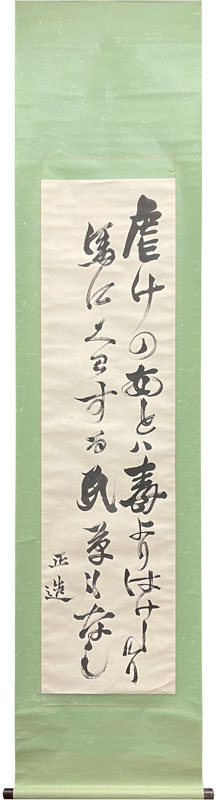 虐けのあとハ毒よりはけしけり
馬にくハする民草もなし
正造